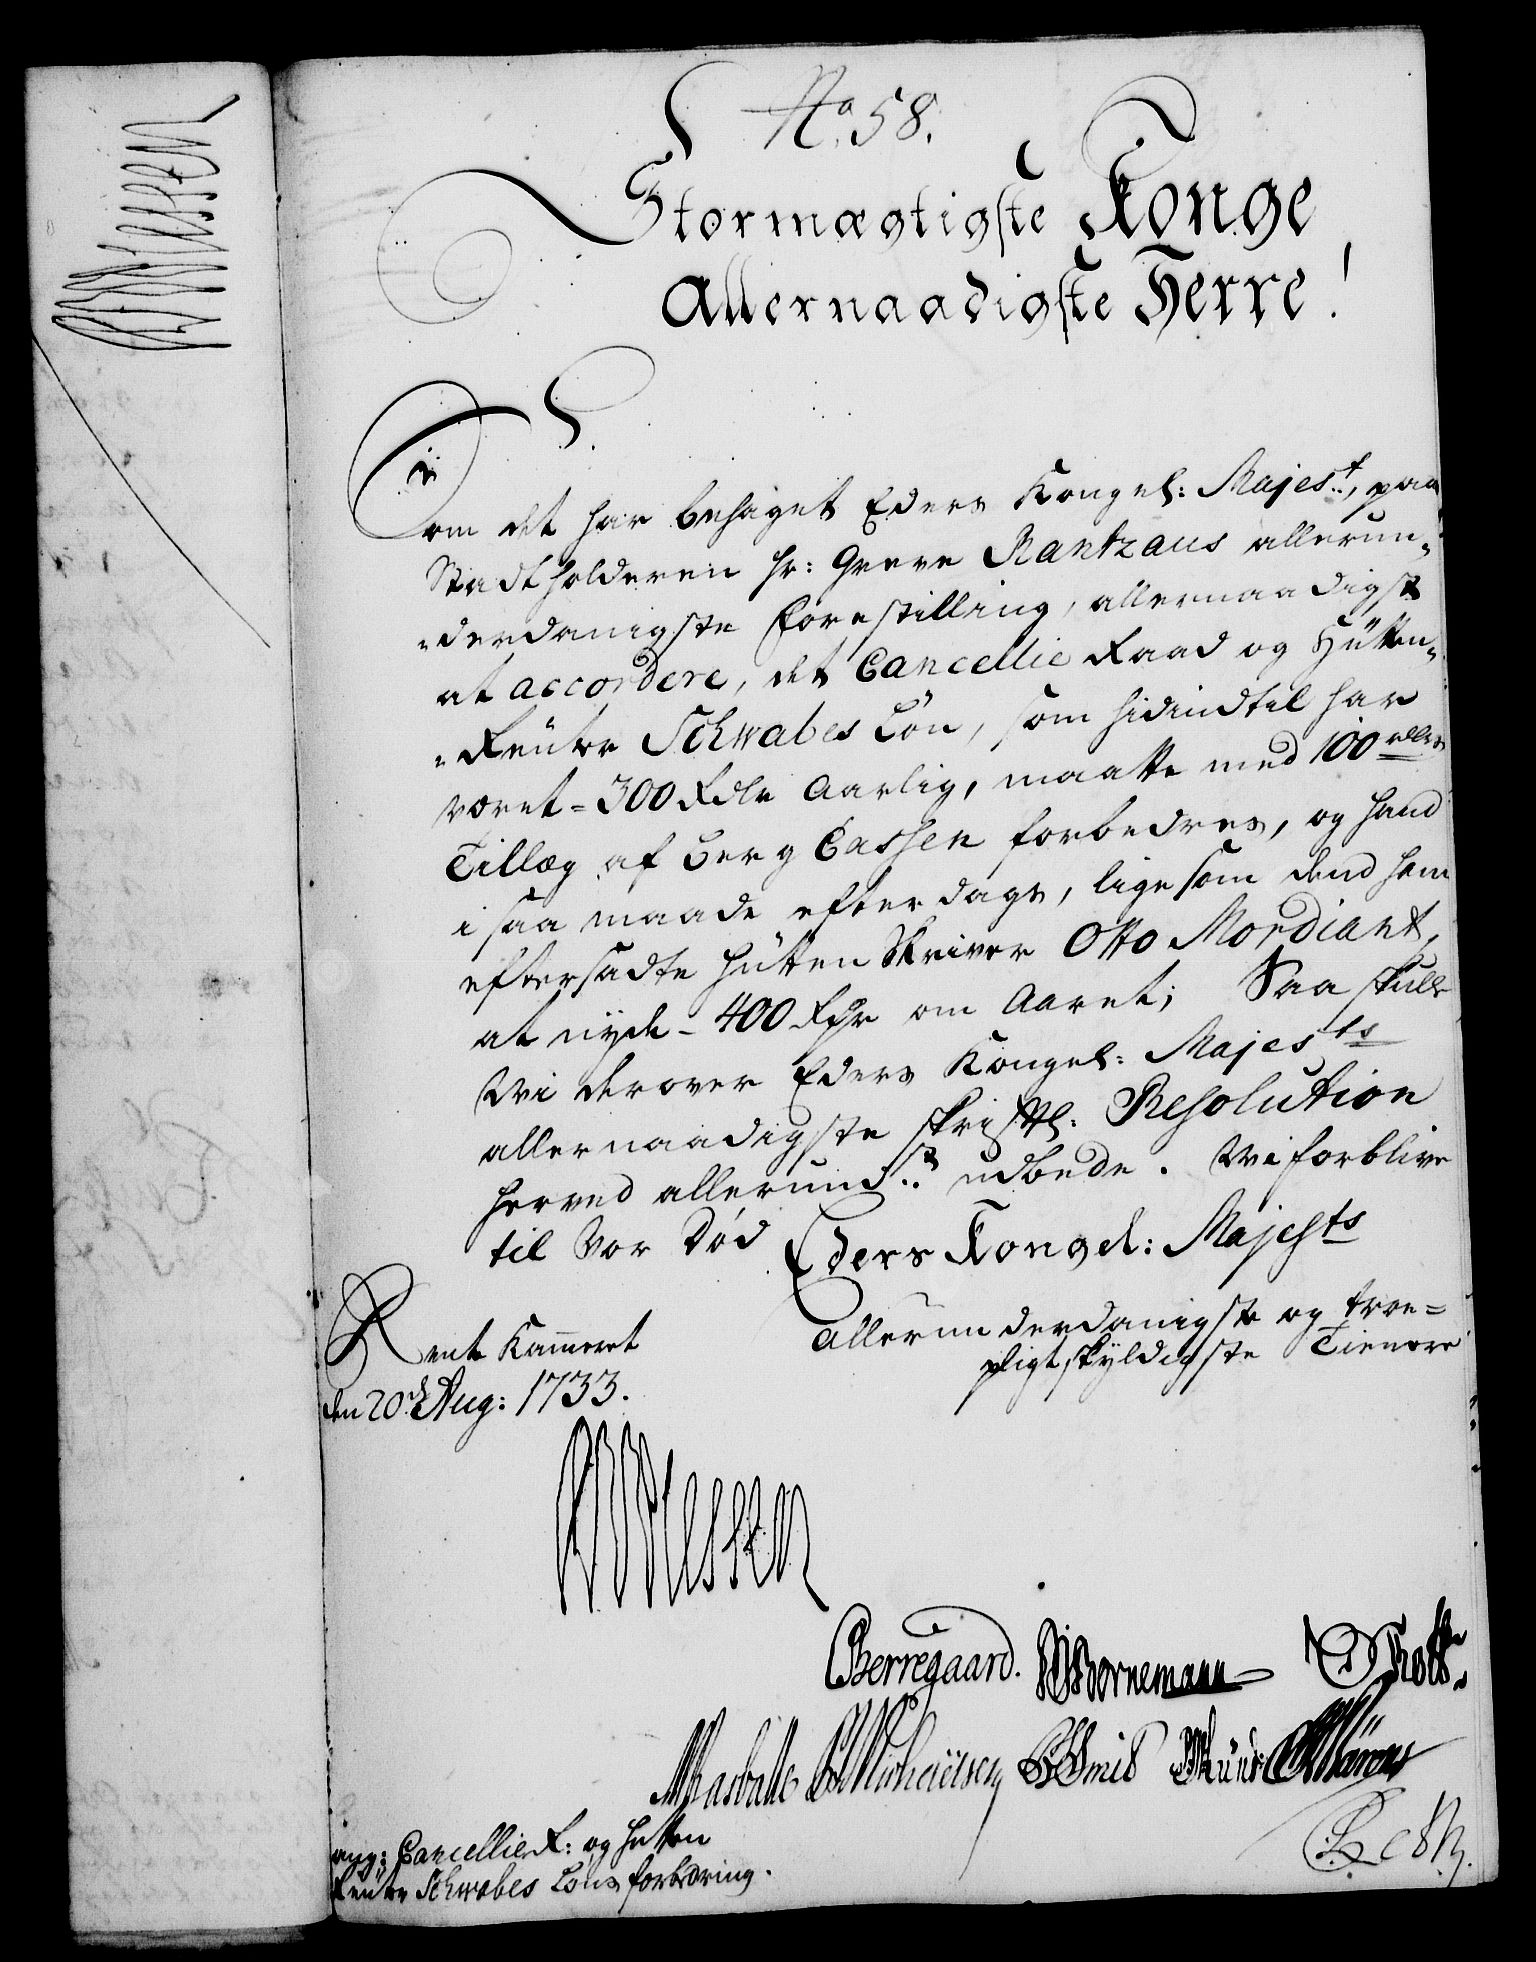 No. 58.
Stormægtigste Konge
Allernaadigste Herre!
Som det har behaget Eders Kongel: Majest., paa
Stadtholderen Hr: Greve Rantzaus allerun-
-derdanigste Forestilling, allernaadigst
at accordere, det Cancellie Raad og Hütten-
-Reüter Schwabes Løn, som hidindtil har
været = 300 Rdlr Aarlig, maatte med 100 rdlrs
Tillæg af Berg Cassen forbedres, og hand
i saa maade efterdags, ligesom dend ham
efterladte Hütten Skriver Otto Mordiant,
at nyde - 400 Rdr om Aaret; Saa skulle
Wi derover Eders Kongel: Majesrs
allernaadigste skriftl: Resolution
herved allerund.st udbede. Wi forblive
til Vor Død
Eders Kongel: Majests
Allerunderdanigste og troe=
pligtskyldigste Tienere
Rente Kammeret
den 20d Aug: 1733.
Wiessen
CBerregaard. Bornemann
Rasbille Michelsen Smid Münk
ang: Cancellie R: og Hutten
Reuter Schwabes Løns forbedring.